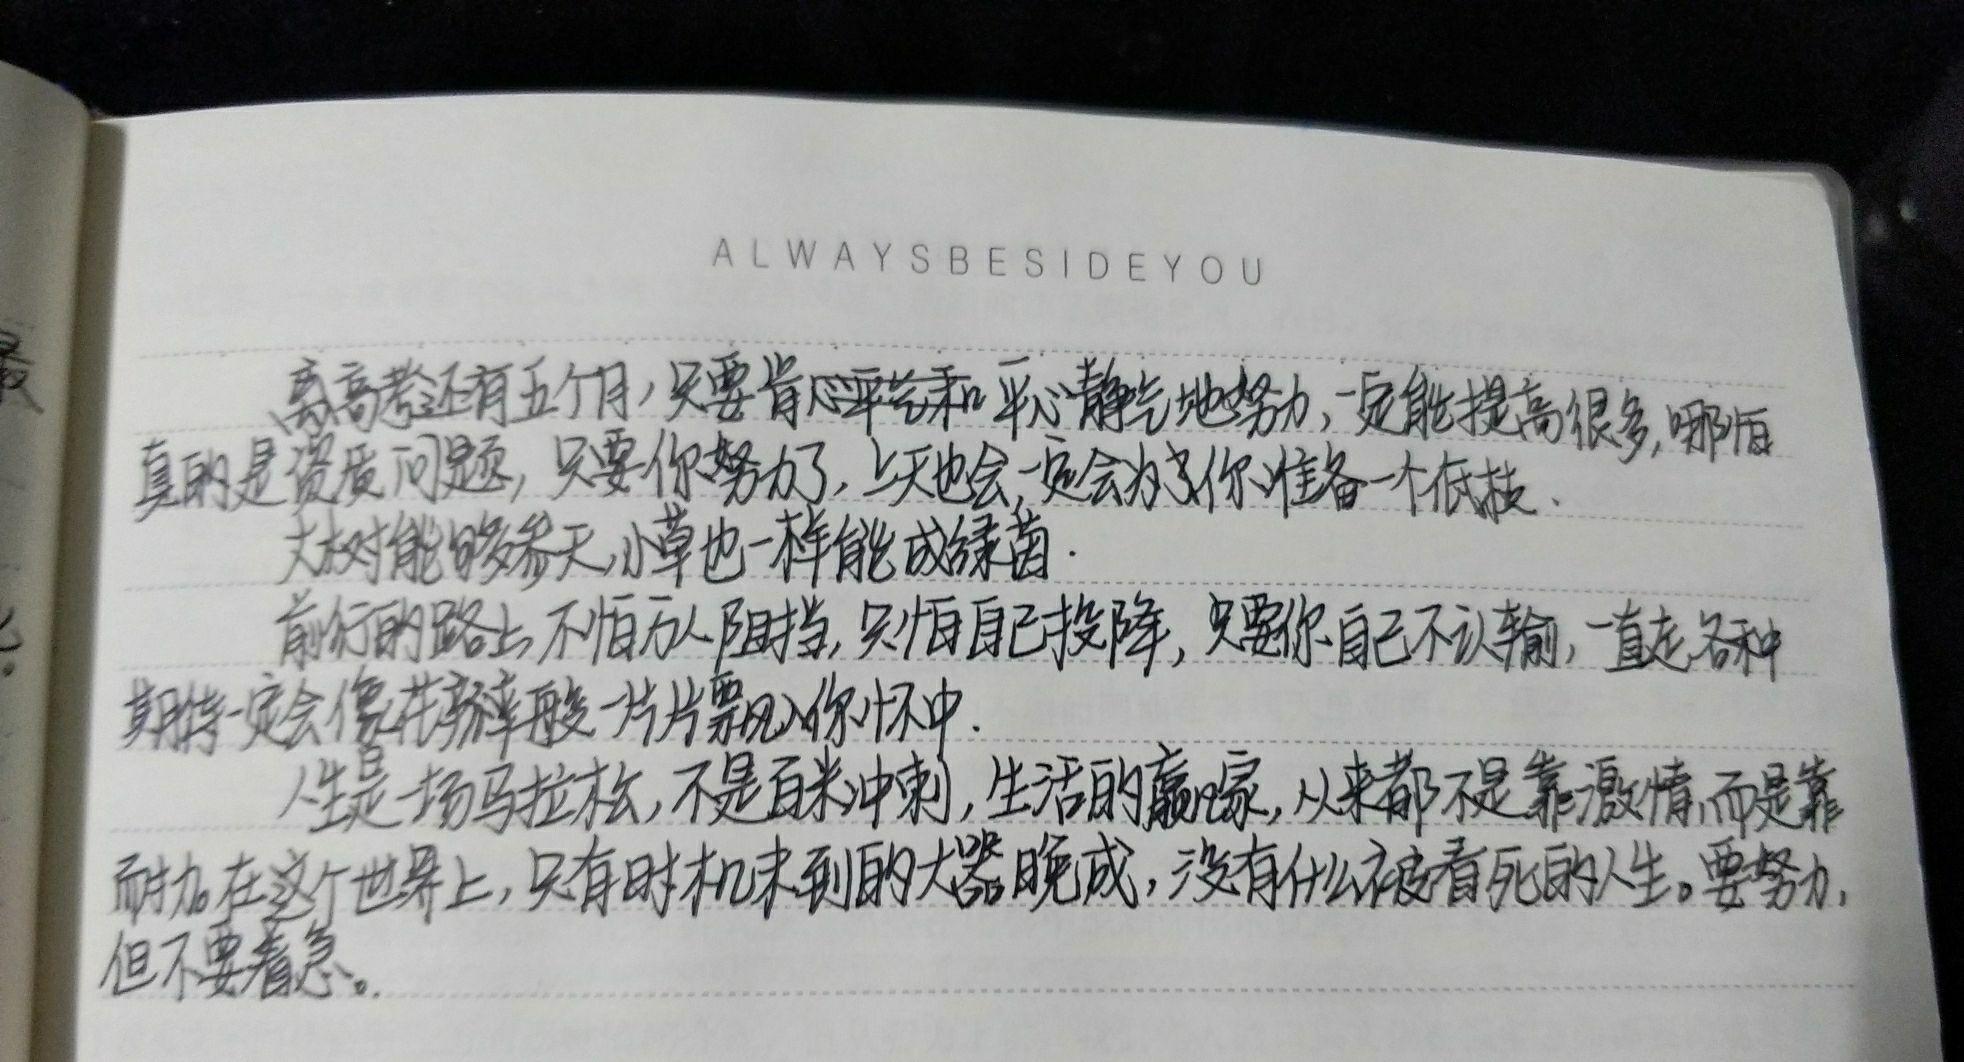 ALWAYSBESIDEYOU
离高考还有五个月，只要肯平心静气地努力，一定能提高很多，哪怕
真的是资质问题，只要你努力了，上天也会一定会为了你准备一个低枝.
大树能够参天，小草也一样能成绿茵.
前行的路上，不怕万人阻挡，只怕自己投降，只要你自己不认输，一直走，各种
期待一定会像花瓣般一片片飘入你怀中.
人生是一场马拉松，不是百米冲刺，生活的赢家，从来都不是靠激情，而是靠
耐力。在这个世界上，只有时机未到的大器晚成，没有什么被看死的人生。要努力，
但不要着急。
最